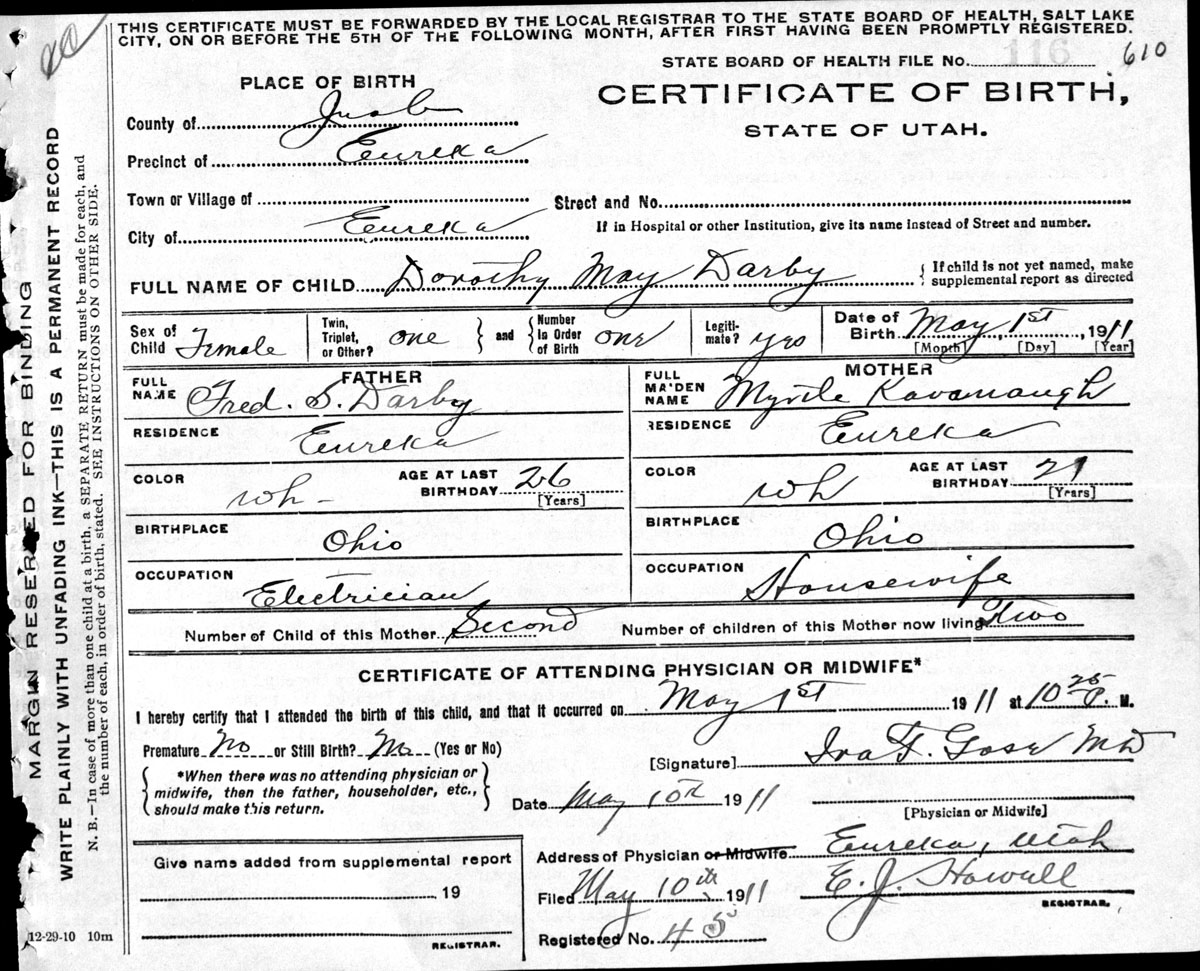 THIS CERTIFICATE MUST BE FORWARDED BY THE LOCAL REGISTRAR TO THE STATE BOARD OF HEALTH, SALT LAKE
CITY, ON OR BEFORE THE 5TH OF THE FOLLOWING MONTH, AFTER FIRST HAVING BEEN PROMPTLY REGISTERED.
STATE BOARD OF HEALTH FILE No. 116 610
PLACE OF BIRTH
CERTIFICATE OF BIRTH,
STATE OF UTAH.
County of Juab
Precinct of Eureka
Town or Village of
Street and No.
City of Eureka
If in Hospital or other Institution, give its name instead of Street and number.
FULL NAME OF CHILD Dorothy May Darby
If child is not yet named, make
supplemental report as directed
Sex of Child Female
Twin, Triplet, or Other? one
and
Number In Order of Birth one
Legiti-mate? yes
Date of Birth May 1st, 1911
[Month] [Day] [Year]
FATHER
FULL NAME Fred. S. Darby
RESIDENCE Eureka
COLOR wh-
AGE AT LAST BIRTHDAY 26
[Years]
BIRTHPLACE Ohio
OCCUPATION Electrician
MOTHER
FULL MAIDEN NAME Myrtle Kavanaugh
RESIDENCE Eureka
COLOR wh
AGE AT LAST BIRTHDAY
[Years]
BIRTHPLACE Ohio
OCCUPATION Housewife
Number of Child of this Mother Second
Number of children of this Mother now living Two
CERTIFICATE OF ATTENDING PHYSICIAN OR MIDWIFE*
I hereby certify that I attended the birth of this child, and that it occurred on May 1st 1911 at 10 25 P. M.
Premature No or Still Birth? No (Yes or No)
[Signature] Ira F. Gose MD
*When there was no attending physician or
midwife, then the father, householder, etc.,
should make this return.
Date May 10th 1911
[Physician or Midwife]
Give name added from supplemental report
19
REGISTRAR.
Address of Physician or Midwife Eureka, Utah
Filed May 10th, 1911 E. J. Howell
REGISTRAR.
Registered No. 45
12-29-10 10m
MARGIN RESERVED FOR BINDING
WRITE PLAINLY WITH UNFADING INK—THIS IS A PERMANENT RECORD
N. B.—In case of more than one child at a birth, a SEPARATE RETURN must be made for each, and
the number of each, in order of birth, stated. SEE INSTRUCTIONS ON OTHER SIDE.